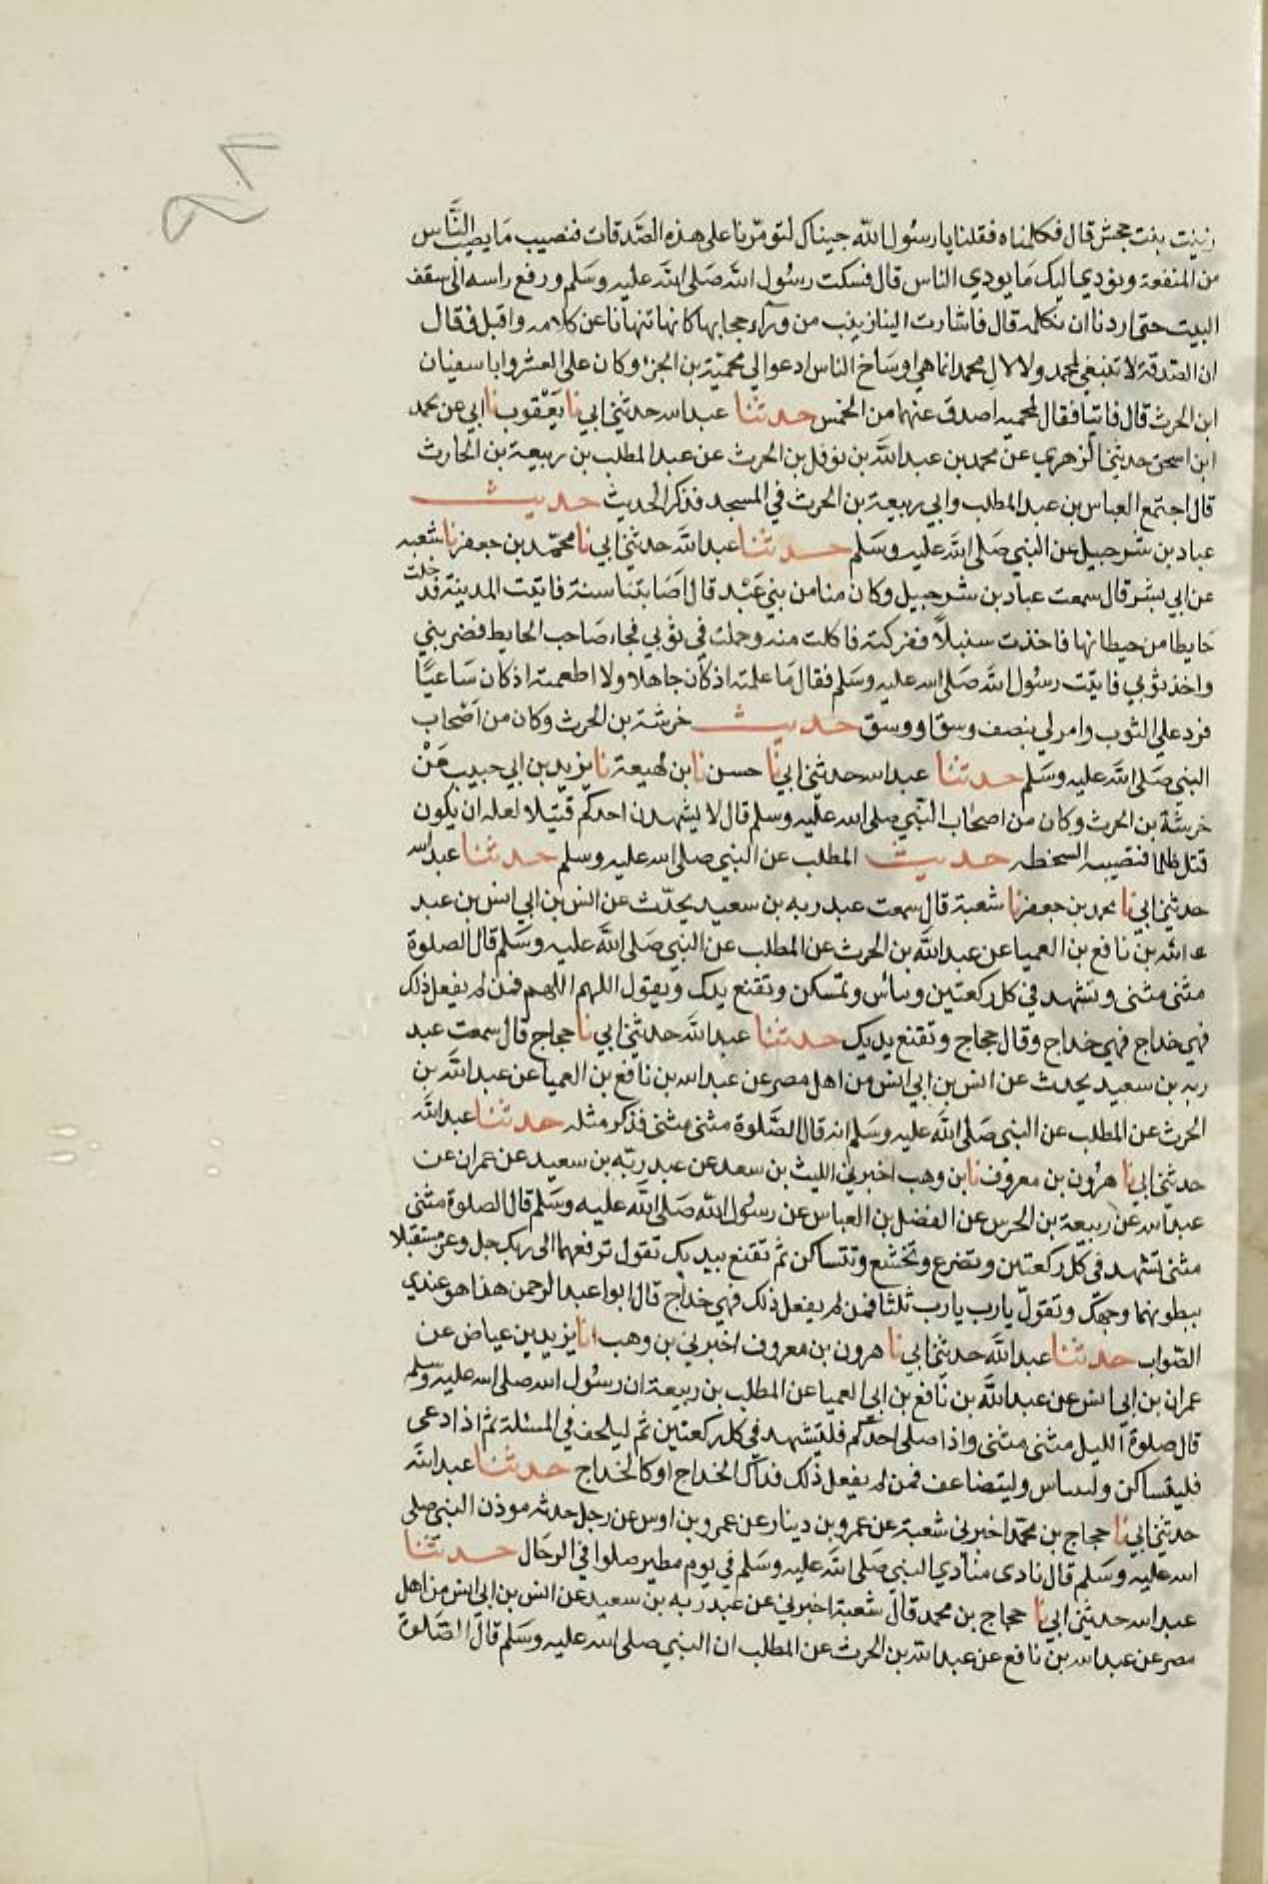 زينب بنت جحش قال فكلمناه فقلنا يا رسول الله جيناك لتومرنا على هذه الصدقات فنصيب ما يصيب الناس
من المنفعة ونودي اليك ما يودي الناس قال فسكت رسول الله صلى الله عليه وسلم ورفع راسه الى سقف
البيت حتى اردنا ان نكلمه قال فاشارت الينا زينب من ورآء حجابها كانها تنهانا عن كلامه واقبل فقال
ان الصدقة لا تنبغي لمحمد ولا لال محمد انما هي اوساخ الناس ادعوا لي محمية بن الجزء وكان على العشر وابا سفيان
ابن الحرث قال فاتيا فقال لمحميه اصدق عنهما من الخمس حدثنا عبد الله حدثني ابي نا يعقوب نا ابي عن محمد
ابن اسحق حدثني الزهري عن محمد بن عبد الله بن نوفل بن الحرث عن عبد المطلب بن ربيعة بن الحارث
قال اجتمع العباس بن عبد المطلب وابي ربيعة بن الحرث في المسجد فذكر الحديث حديث
عباد بن شرحبيل عن النبي صلى الله عليه وسلم حدثنا عبد الله حدثني ابي نا محمد بن جعفر نا شعبه
عن ابي بشر قال سمعت عباد بن شرحبيل وكان منا من بني عبد قال اصابتنا سنة فاتيت المدينة فدخلت
حايطا من حيطانها فاخذت سنبلاً ففركته فاكلت منه وحملت في ثوبي فجاء صاحب الحايط فضربني
واخذ ثوبي فاتيت رسول الله صلى الله عليه وسلم فقال ما علمته اذ كان جاهلا ولا اطعمته اذ كان ساعيًا
فرد علي الثوب وامر لي بنصف وسق او وسق حديث خرشة بن الحرث وكان من اصحاب
النبي صلى الله عليه وسلم حدثنا عبد الله حدثني ابي نا حسن نا بن لهيعة نا يزيد بن ابي حبيب عن
خرشة بن الحرث وكان من اصحاب النبي صلى الله عليه وسلم قال لا يشهدن احدكم قتيلا لعله ان يكون
قتل ظلما فتصيبه السخطه حديث المطلب عن النبي صلى الله عليه وسلم حدثنا عبد الله
حدثني ابي نا محمد بن جعفر نا شعبة قال سمعت عبد ربه بن سعيد يحدث عن انس بن ابي انس بن عبد
الله بن نافع بن العميا عن عبد الله بن الحرث عن المطلب عن النبي صلى الله عليه وسلم قال الصلوة
مثنى مثنى وتشهد في كل ركعتين وتباس وتمسكن وتقنع يدك وتقول اللهم اللهم فمن لم يفعل ذلك
فهي خداج فهي خداج وقال حجاج وتقنع يديك حدثنا عبد الله حدثني ابي نا حجاج قال سمعت عبد
ربه بن سعيد يحدث عن انس بن ابي انس من اهل مصر عن عبد الله بن نافع بن العميا عن عبد الله بن
الحرث عن المطلب عن النبي صلى الله عليه وسلم انه قال الصلوة مثنى مثنى فذكر مثله حدثنا عبد الله
حدثني ابي نا هرون بن معروف نا بن وهب اخبرني الليث بن سعد عن عبد ربه بن سعيد عن عمران عن
عبد الله عن ربيعة بن الحرس عن الفضل بن العباس عن رسول الله صلى الله عليه وسلم قال الصلوة مثنى
مثنى تشهد في كل ركعتين وتضرع وتخشع وتتساكن ثم تقنع بيديك تقول ترفعهما الى ربك جل وعز مستقبلا
ببطونهما وجهك وتقول يا رب يا رب ثلثا فمن لم يفعل ذلك فهي خداج قال ابوا عبد الرحمن هذا هو عندي
الصواب حدثنا عبد الله حدثني ابي نا هرون بن معروف اخبرني بن وهب انا يزيد بن عياض عن
عمران بن ابي انس عن عبد الله بن نافع بن ابي العميا عن المطلب بن ربيعة ان رسول الله صلى الله عليه وسلم
قال صلوة الليل مثنى مثنى واذا صلى احدكم فليتشهد في كل ركعتين ثم ليلحف في المسئلة ثم اذا دعى
فليتساكن وليباس وليتضاعف فمن لم يفعل ذلك فذاك الخداج او كالخداج حدثنا عبد الله
حدثني ابي نا حجاج بن محمد اخبرني شعبة عن عمرو بن دينار عن عمرو بن اوس عن رجل حدثه موذن النبي صلى
الله عليه وسلم قال نادى منادي النبي صلى الله عليه وسلم في يوم مطير صلوا في الرحال حدثنا
عبد الله حدثني ابي نا حجاج بن محمد قال شعبة اخبرني عن عبد ربه بن سعيد عن انس بن ابي انس من اهل
مصر عن عبد الله بن نافع عن عبد الله بن الحرث عن المطلب ان النبي صلى الله عليه وسلم قال الصلوة